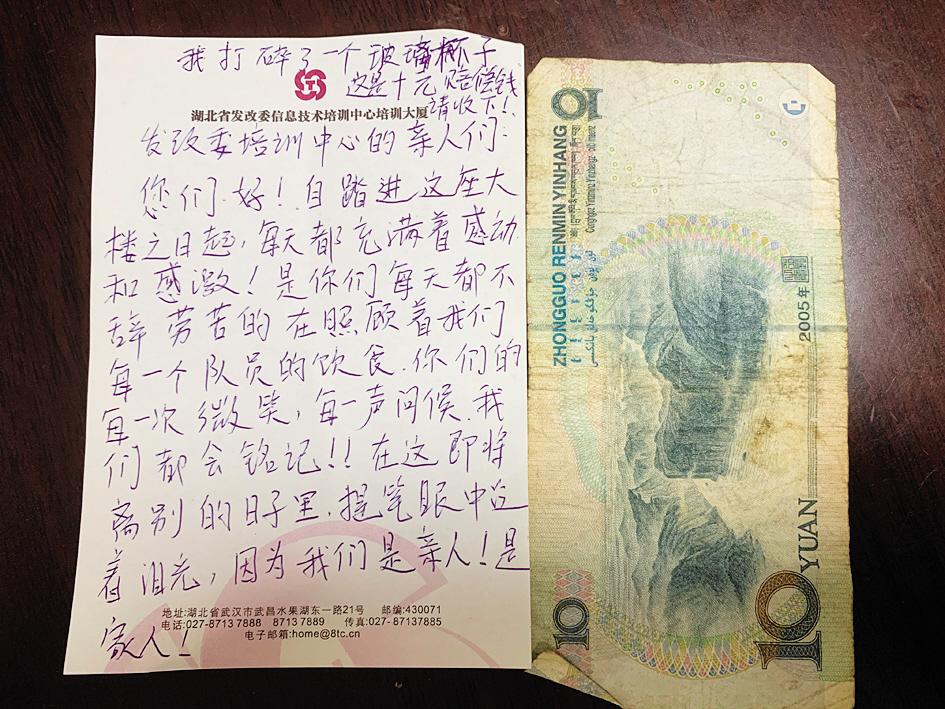 我打碎了一个玻璃杯子
这是十元赔偿钱
请收下!
湖北省发改委信息技术培训中心培训大厦
发改委培训中心的亲人们:
您们好!自踏进这座大
楼之日起,每天都充满着感动
和感激!是你们每天都不
辞劳苦的在照顾着我们
每一个队员的饮食.你们的
每一次微笑,每一声问候.我
们都会铭记!!在这即将
离别的日子里.提笔眼中泛
着泪光,因为我们是亲人!是
家人!
地址:湖北省武汉市武昌水果湖东一路21号 邮编:430071
电话:027-8713 7888 8713 7889 传真:027-87137885
电子邮箱:home@8tc.cn
ZHONGGUO RENMIN YINHANG
2005年
10
YUAN
10
10